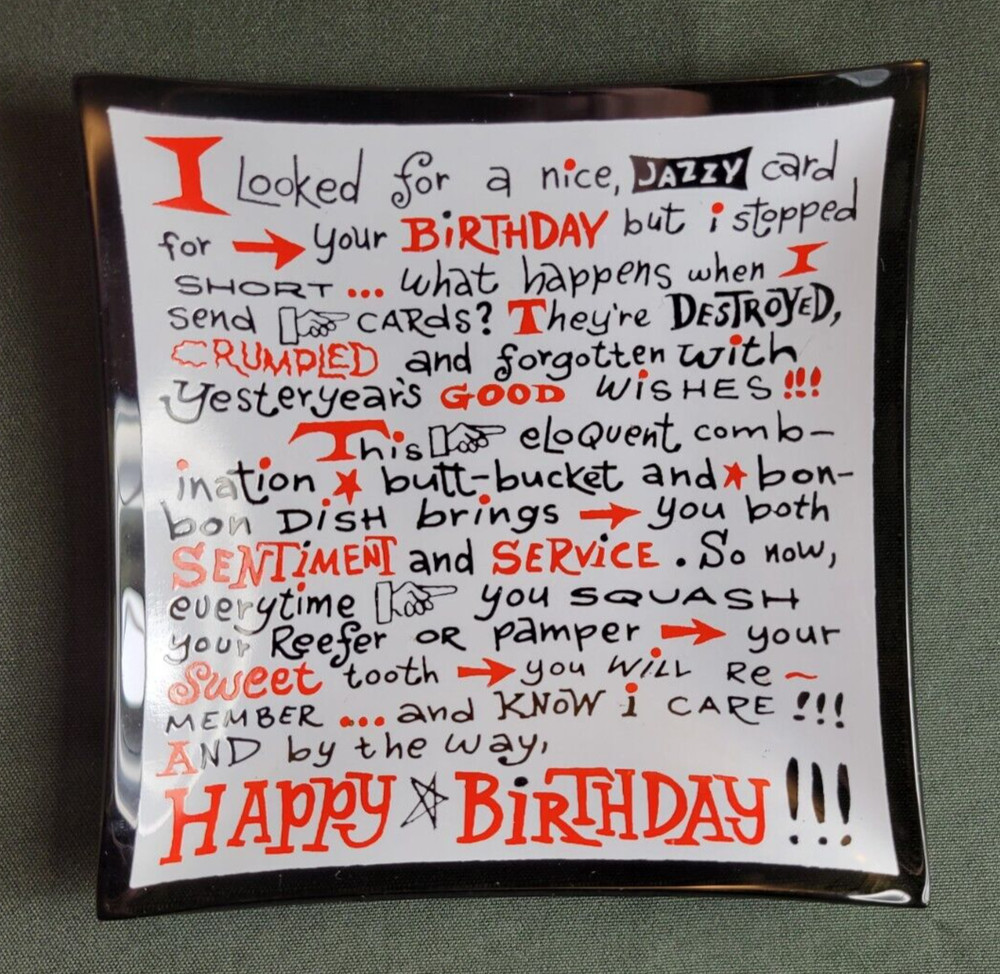 I Looked for a nice, JAZZY card
for → your BiRTHDAY but i stopped
SHORT ... what happens when I
send ☞ CARdS? They're DESTROYED,
CRUMPLED and forgotten with
Yesteryear's GOOD WiSHES !!!
This ☞ eloquent comb-
ination ★ butt-bucket and ★ bon-
bon DiSH brings → you both
SENTiMENT and SERViCE. So now,
everytime ☞ you SQUASH
your Reefer OR pamper → your
Sweet tooth → you WiLL Re~
MEMBER ... and KNOW i CARE !!!
AND by the way,
HAppy ☆ BiRTHDAY !!!